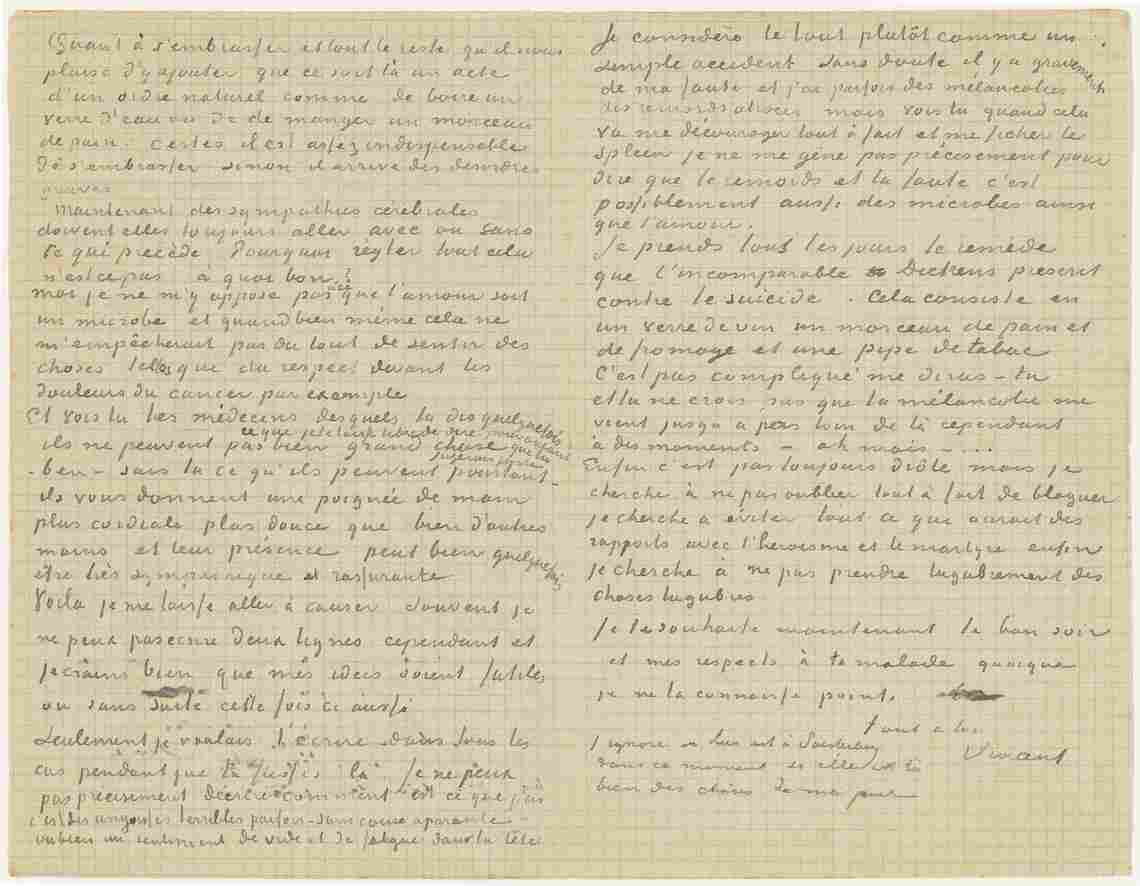 Quant à s'embrasser et tout le reste qu'il nous
plaise d'y ajouter que ce soit là un acte
d'un ordre naturel comme de boire un
verre d'eau ou de manger un morceau
de pain. Certes il est assez indispensable
de s'embrasser sinon il arrive des désordres
graves
Maintenant des sympathies cérébrales
doivent elles toujours aller avec ou sans
ce qui précède Pourquoi régler tout cela
n'est ce pas à quoi bon?
moi je ne m'y oppose pas à ce que l'amour soit
un microbe et quand bien même cela ne
m'empêcherait pas du tout de sentir des
choses telles que du respect devant les
douleurs du cancer par exemple
Et vois tu les médecins desquels tu dis quelquefois
ils ne peuvent pas bien grand chose
ce que je te laisse libre de dire pour autant que tu le juges convenable
- ben - sais tu ce qu'ils peuvent pourtant -
ils vous donnent une poignée de main
plus cordiale plus douce que bien d'autres
mains et leur présence peut bien quelquefois
être très sympathique et rassurante
Voilà je me laisse aller à causer Souvent je
ne peux pas écrire deux lignes cependant et
je crains bien que mes idées soient futiles
ou sans suite cette fois ci aussi
Seulement je voulais t'écrire dans tous les
cas pendant que tu fusses là Je ne peux
pas précisement décrire comment est ce que j'ai
c'est des angoisses terribles parfois - sans cause apparente -
ou bien un sentiment de vide et de fatigue dans la tête
Je considère le tout plutôt comme un
simple accident sans doute il y a gravement
de ma faute et j'ai parfois des mélancolies
des remords atroces mais vois tu quand cela
va me décourager tout à fait et me ficher le
spleen je ne me gêne pas précisément pour
dire que le remords et la faute c'est
possiblement aussi des microbes ainsi
que l'amour.
Je prends tous les jours le remède
que l'incomparable Dickens prescrit
contre le suicide. Cela consiste en
un verre de vin un morceau de pain et
de fromage et une pipe de tabac
C'est pas compliqué me diras-tu
et tu ne crois pas que la mélancolie me
vient jusqu'à près loin de là cependant
à des moments - ah mais - ...
Enfin c'est pas toujours drôle mais je
cherche à ne pas oublier tout à fait de blaguer
je cherche à éviter tout ce que aurait des
rapports avec l'héroïsme et le martyre enfin
je cherche à ne pas prendre lugubrement des
choses lugubres
Je te souhaite maintenant le bon soir
et mes respects à ta malade quoique
je ne la connaisse point.
t. à toi
Vincent
J'ignore si Lies est à Soesterberg
dans ce moment si elle est là
bien des choses de ma part